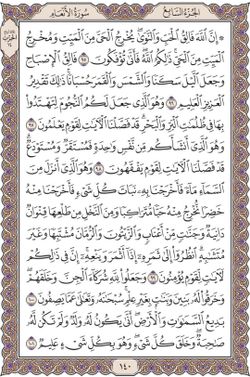 الجزء السابع
سورة الأنعام
إِنَّ ٱللَّهَ فَالِقُ ٱلْحَبِّ وَٱلنَّوَىٰ يُخْرِجُ ٱلْحَىَّ مِنَ ٱلْمَيِّتِ وَمُخْرِجُ
ٱلْمَيِّتِ مِنَ ٱلْحَىِّ ذَٰلِكُمُ ٱللَّهُ فَأَنَّىٰ تُؤْفَكُونَ ٩٥ فَالِقُ ٱلْإِصْبَاحِ
وَجَعَلَ ٱلَّيْلَ سَكَنًا وَٱلشَّمْسَ وَٱلْقَمَرَ حُسْبَانًا ذَٰلِكَ تَقْدِيرُ
ٱلْعَزِيزِ ٱلْعَلِيمِ ٩٦ وَهُوَ ٱلَّذِى جَعَلَ لَكُمُ ٱلنُّجُومَ لِتَهْتَدُوا۟
بِهَا فِى ظُلُمَٰتِ ٱلْبَرِّ وَٱلْبَحْرِ قَدْ فَصَّلْنَا ٱلْءَايَٰتِ لِقَوْمٍ يَعْلَمُونَ ٩٧
وَهُوَ ٱلَّذِىٓ أَنشَأَكُم مِّن نَّفْسٍ وَٰحِدَةٍ فَمُسْتَقَرٌّ وَمُسْتَوْدَعٌ
قَدْ فَصَّلْنَا ٱلْءَايَٰتِ لِقَوْمٍ يَفْقَهُونَ ٩٨ وَهُوَ ٱلَّذِىٓ أَنزَلَ مِنَ
ٱلسَّمَآءِ مَآءً فَأَخْرَجْنَا بِهِۦ نَبَاتَ كُلِّ شَىْءٍ فَأَخْرَجْنَا مِنْهُ
خَضِرًا نُّخْرِجُ مِنْهُ حَبًّا مُّتَرَاكِبًا وَمِنَ ٱلنَّخْلِ مِن طَلْعِهَا قِنْوَانٌ
دَانِيَةٌ وَجَنَّٰتٍ مِّنْ أَعْنَابٍ وَٱلزَّيْتُونَ وَٱلرُّمَّانَ مُشْتَبِهًا وَغَيْرَ
مُتَشَٰبِهٍ ٱنظُرُوٓا۟ إِلَىٰ ثَمَرِهِۦٓ إِذَآ أَثْمَرَ وَيَنْعِهِۦٓ إِنَّ فِى ذَٰلِكُمْ
لَءَايَٰتٍ لِّقَوْمٍ يُؤْمِنُونَ ٩٩ وَجَعَلُوا۟ لِلَّهِ شُرَكَآءَ ٱلْجِنَّ وَخَلَقَهُمْ
وَخَرَقُوا۟ لَهُۥ بَنِينَ وَبَنَٰتٍۭ بِغَيْرِ عِلْمٍ سُبْحَٰنَهُۥ وَتَعَٰلَىٰ عَمَّا يَصِفُونَ ١٠٠
بَدِيعُ ٱلسَّمَٰوَٰتِ وَٱلْأَرْضِ أَنَّىٰ يَكُونُ لَهُۥ وَلَدٌ وَلَمْ تَكُن لَّهُۥ
صَٰحِبَةٌ وَخَلَقَ كُلَّ شَىْءٍ وَهُوَ بِكُلِّ شَىْءٍ عَلِيمٌ ١٠١
١٤٠